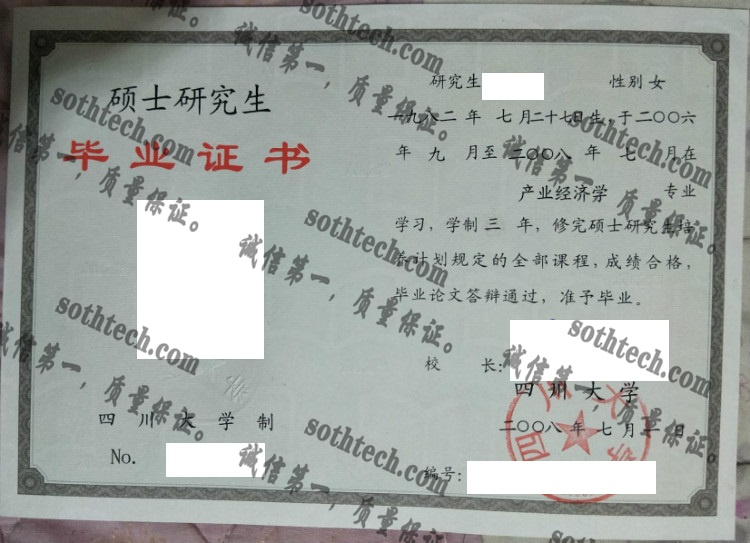 硕士研究生
毕业证书
四川大学制
No.
研究生 性别 女
一九八二年 七月二十七日生,于二〇〇六
年 九 月至 二〇〇八 年 七 月在
产业经济学 专业
学习,学制 三 年,修完硕士研究生培
养计划规定的全部课程,成绩合格,
毕业论文答辩通过,准予毕业。
校 长:
四川大学
二〇〇八年 七月 一日
编号:
sothtech.com
诚信第一,质量保证。
sothtech.com
诚信第一,质量保证。
sothtech.com
诚信第一,质量保证。
sothtech.com
诚信第一,质量保证。
sothtech.com
诚信第一,质量保证。
sothtech.com
诚信第一,质量保证。
sothtech.com
诚信第一,质量保证。
sothtech.com
诚信第一,质量保证。